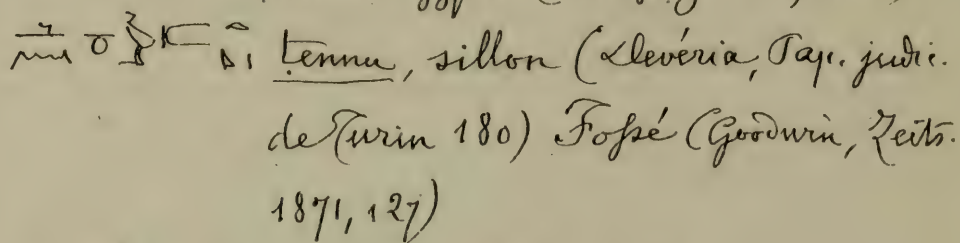 tennu, sillon (Devéria, Pap. judic.
de Turin 180) Fossé (Goodwin, Zeits.
1871, 127)